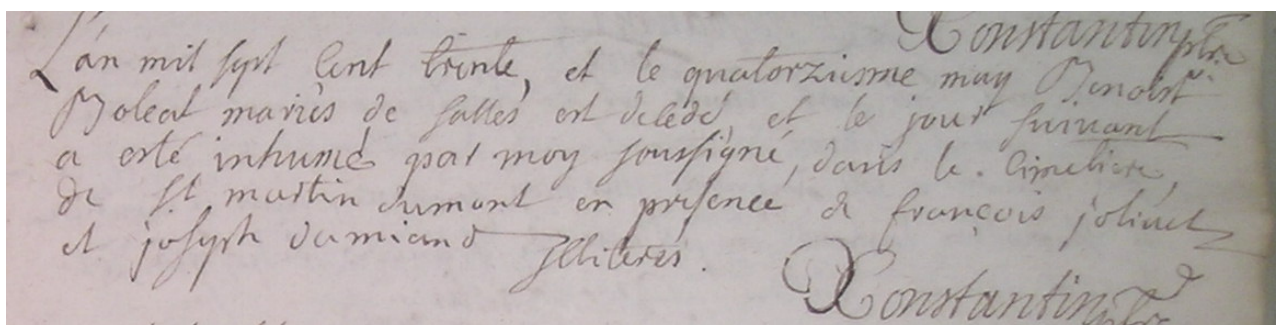 Constantin ptre
L'an mil sept cent trente, et le quatorziesme may Benoist
Boleat mariés de salles est decedé et le jour suivant
a esté inhumé par moy soussigné, dans le cimetiere
de st martin dumont en presence de françois joliuet
et joseph damiand illiteres.
Constantin ptre